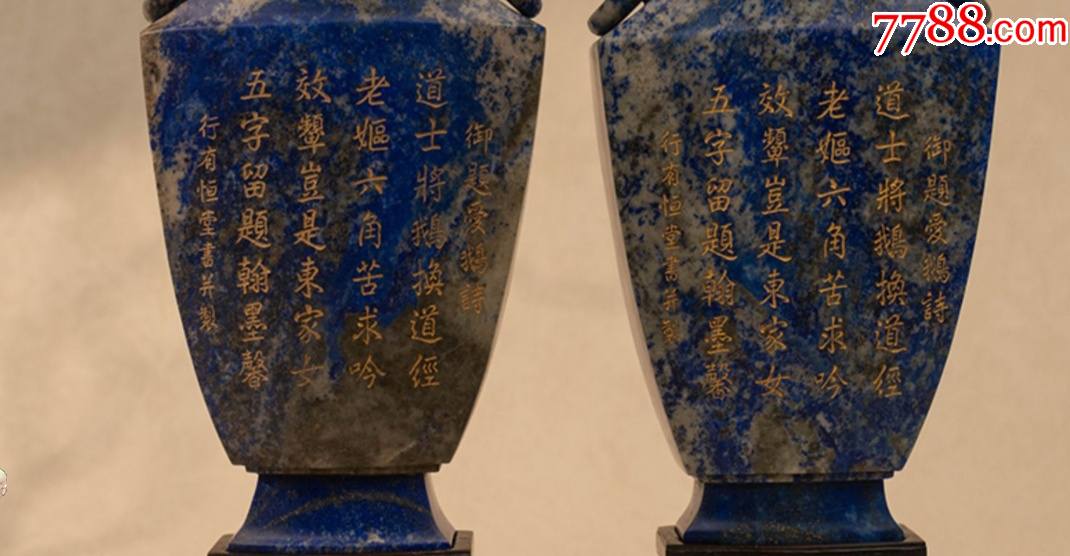 7788.com
御題愛鵝詩
道士將鵝換道經
老嫗六角苦求吟
效顰豈是東家女
五字留題翰墨馨
行有恒堂書并製
御題愛鵝詩
道士將鵝換道經
老嫗六角苦求吟
效顰豈是東家女
五字留題翰墨馨
行有恒堂書并製